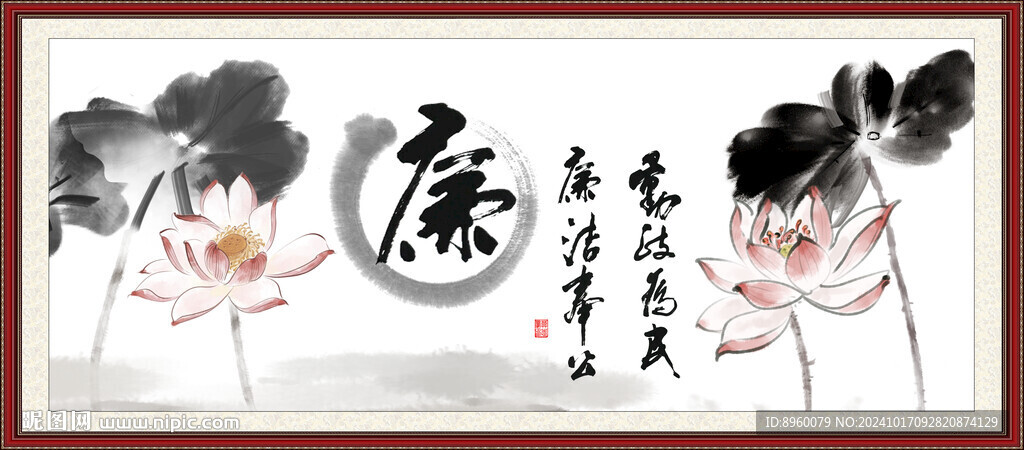 廉
勤政為民
廉洁奉公
昵图网 www.nipic.com
ID:8960079 NO:20241017092820874129